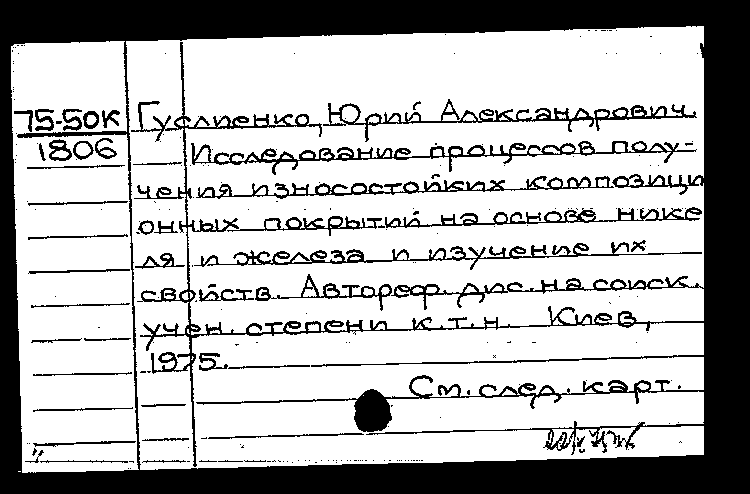 75-50к Гуслиенко, Юрий Александрович.
1806 Исследование процессов полу-
чения износостойких композици
онных покрытий на основе нике
ля и железа и изучение их
свойств. Автореф. дис. на соиск.
учен. степени к.т.н. Киев,
1975.
См. след. карт.